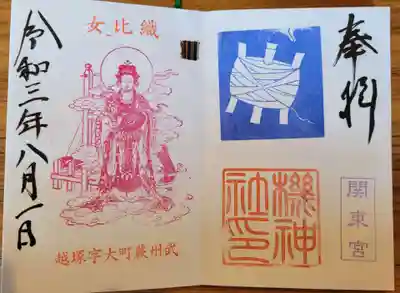 奉拝
関東宮
機神
社印
織比女
武州蕨町大字塚越
令和三年八月一日